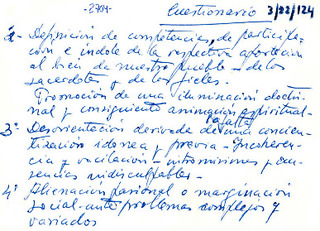 -2704- Cuestionario 3/22/124
2ª- Definición de competencias, de participa-
ción e índole de la respectiva aportación
al bien de nuestro pueblo - de los
sacerdotes y de los fieles.
Promoción de una iluminación doctri-
nal y consiguiente animación espiritual-
la falta
3ª- Desorientación derivada de una concien-
tización idónea y previa - Incoheren-
cia y vacilación - intromisiones y au-
sencias indisculpables.-
4ª- Alienación pasional o marginación
social ante problemas complejos y
variados